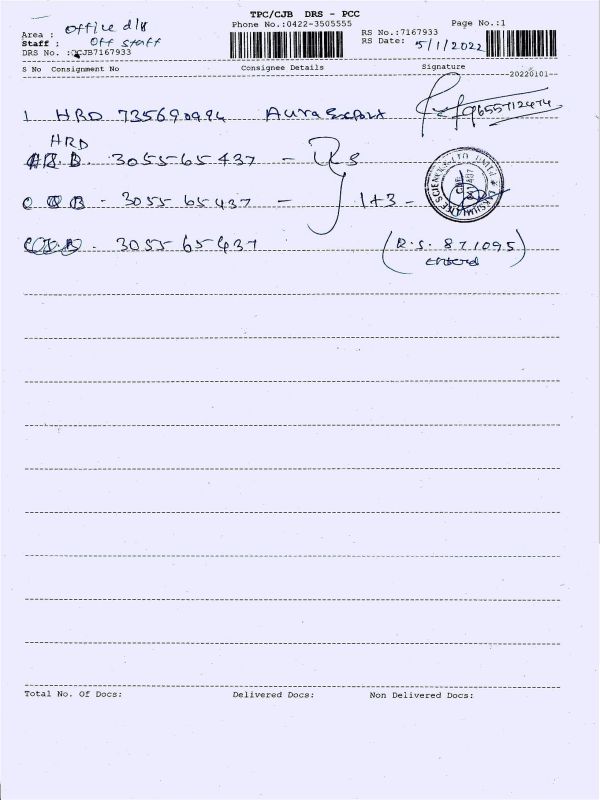 TPC/CJB DRS - PCC
Area : office dlb
Phone No.:0422-3505555
Page No.:1
Staff : Off staff
RS No.:7167933
DRS No. :CJB7167933
RS Date: 5/1/2022
S No Consignment No Consignee Details Signature
20220101--
1 HRD 735690994 Aura Export 9655712474
HRD
3055565437 -
COB - 305565437 - 1+3 -
305565437 (R.S. 871095)
entered
Total No. Of Docs: Delivered Docs: Non Delivered Docs: